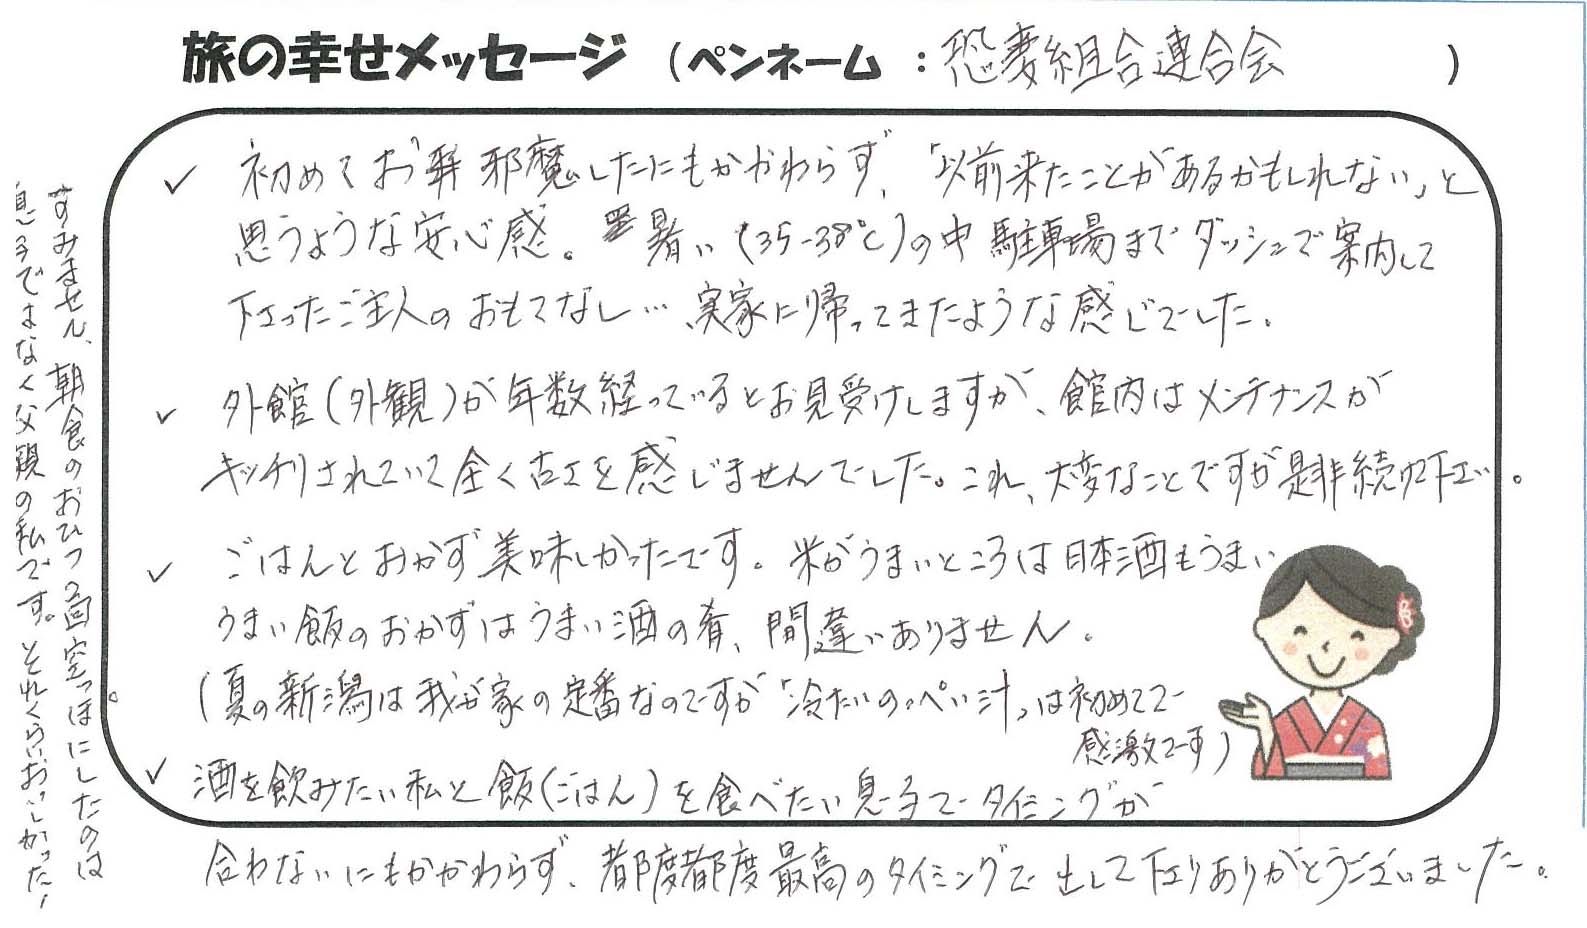 旅の幸せメッセージ (ペンネーム : 恐妻組合連合会 )
✓ 初めてお邪魔したにもかかわらず、「以前来たことがあるかもしれない」と
思うような安心感。暑い(35-38℃)の中駐車場までダッシュで案内して
下さったご主人のおもてなし…、実家に帰ってきたような感じでした。
✓ 外館(外観)が年数経っているとお見受けしますが、館内はメンテナンスが
キッチリされていて全く古さを感じませんでした。これ、大変なことですが是非続けて下さい。
✓ ごはんとおかず美味しかったです。米がうまいところは日本酒もうまい
うまい飯のおかずはうまい酒の肴、間違いありません。
(夏の新潟は我が家の定番なのですが「冷たいのっぺい汁」は初めてで
感激です)
✓ 酒を飲みたい私と飯(ごはん)を食べたい息子でタイミングが
合わないにもかかわらず、都度都度最高のタイミングで出して下さりありがとうございました。
すみません、朝食のおひつ2回空っぽにしたのは
息子ではなく父親の私です。それくらいおいしかった!